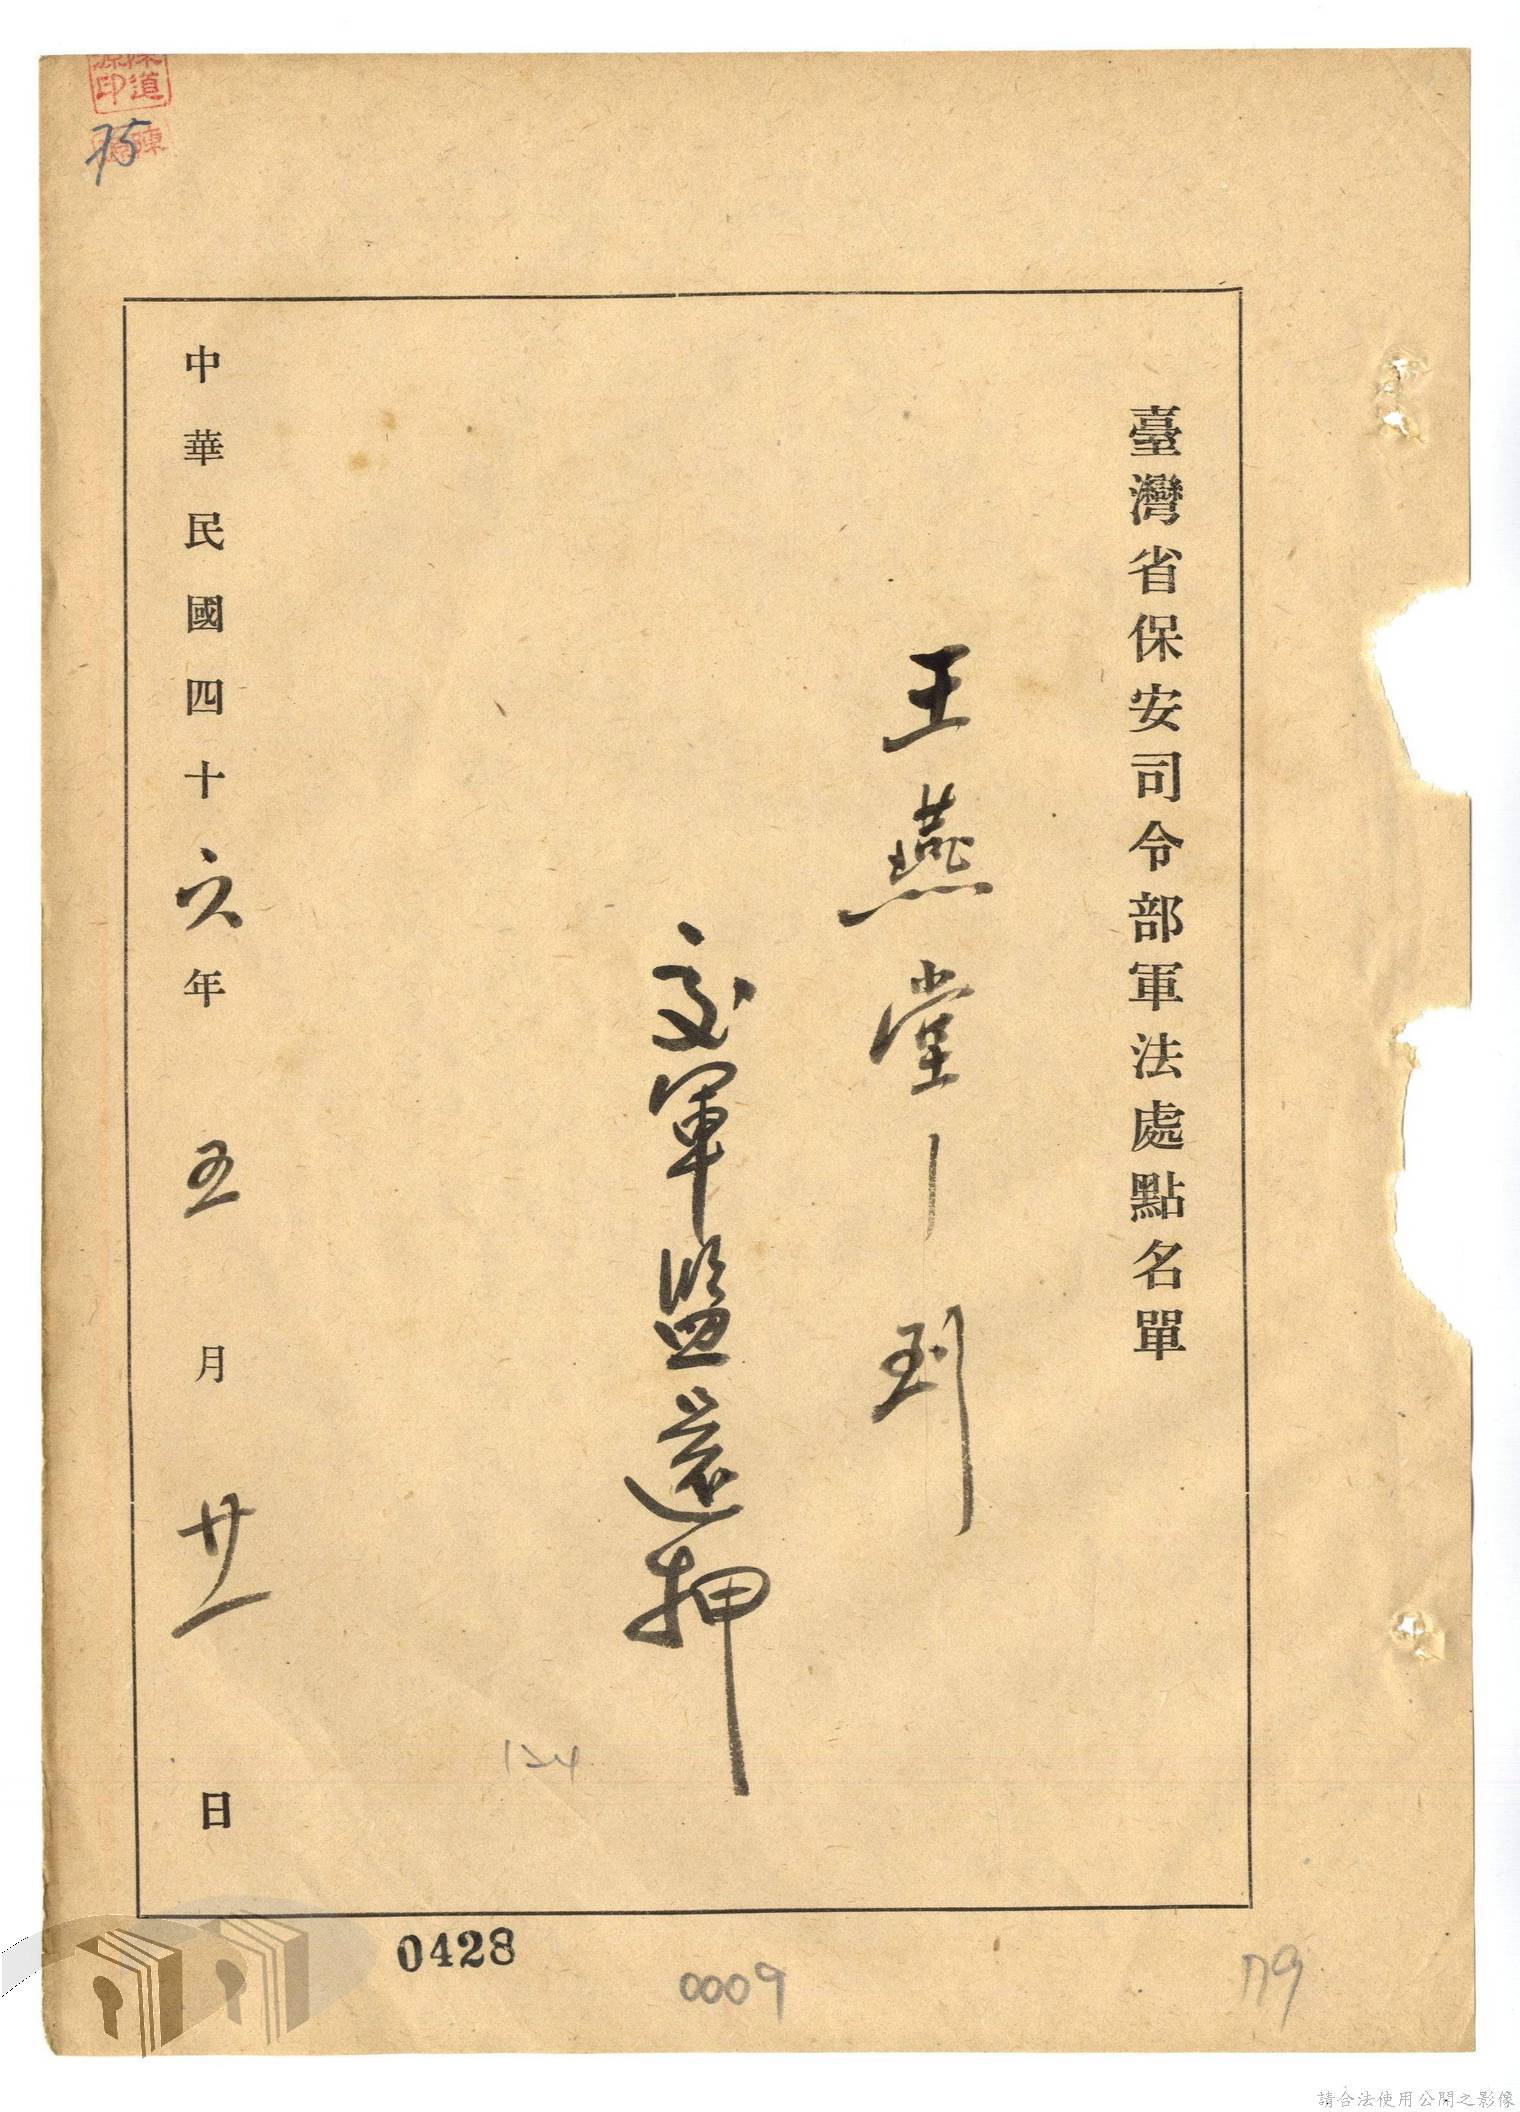 臺灣省保安司令部軍法處點名單
王燕堂 到
交軍監還押
中華民國四十六年 五 月 廿一 日
道
印
陳
75
124
0428
0009
179
請合法使用公開之影像